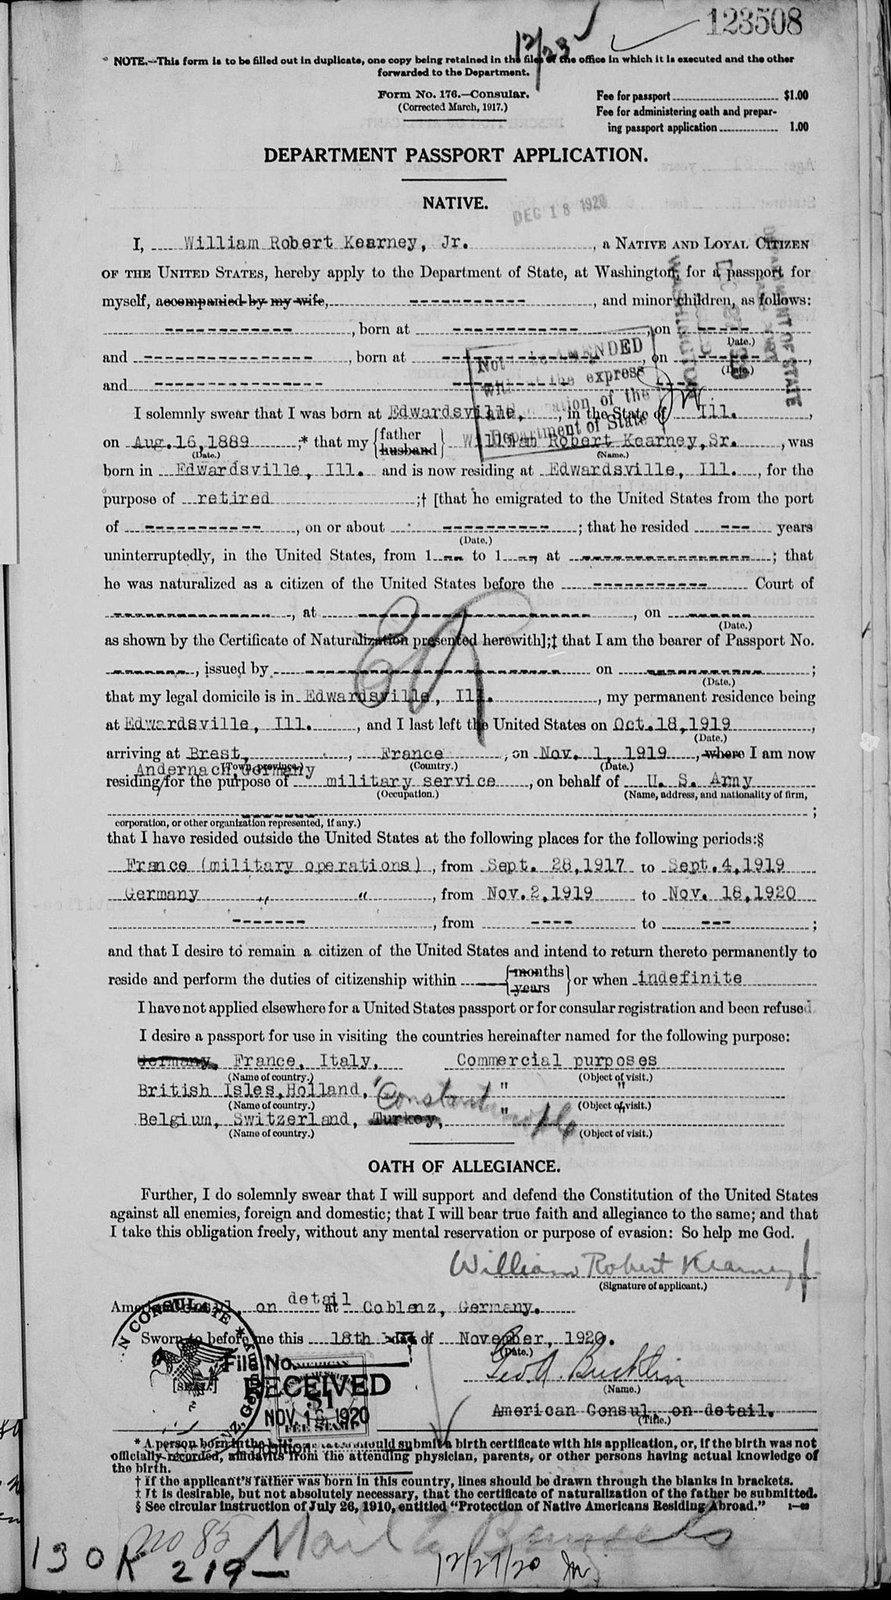 123508
12/23
NOTE.—This form is to be filled out in duplicate, one copy being retained in the files of the office in which it is executed and the other
forwarded to the Department.
Form No. 176.—Consular.
(Corrected March, 1917.)
Fee for passport $1.00
Fee for administering oath and prepar-
ing passport application 1.00
DEPARTMENT PASSPORT APPLICATION.
NATIVE.
DEC 18 1920
I, William Robert Kearney, Jr. , a NATIVE AND LOYAL CITIZEN
OF THE UNITED STATES, hereby apply to the Department of State, at Washington, for a passport for
myself, accompanied by my wife, ----------- , and minor children, as follows:
------------ , born at ------------ , on -----
(Date.)
and ---------------- , born at ------------ , on -----
(Date.)
and ----------------
Not to be AMENDED
without the express
of the
Department of State
DEPARTMENT OF STATE
WASHINGTON
I solemnly swear that I was born at Edwardsville, , in the State of Ill. ,
on Aug.16,1889 ;* that my {father
husband} William Robert Kearney,Sr. , was
(Date.) (Name.)
born in Edwardsville, Ill. and is now residing at Edwardsville, Ill. , for the
purpose of retired ;† [that he emigrated to the United States from the port
of ----------- , on or about ---------- ; that he resided --- years
(Date.)
uninterruptedly, in the United States, from 1 -- to 1 --, at ------------------ ; that
he was naturalized as a citizen of the United States before the ----------- Court of
---------------, at ----------------------, on ------
(Date.)
as shown by the Certificate of Naturalization presented herewith];‡ that I am the bearer of Passport No.
--------, issued by ------------------------ on ----------- ;
(Date.)
that my legal domicile is in Edwardsville, Ill. , my permanent residence being
at Edwardsville, Ill. , and I last left the United States on Oct.18,1919 ,
(Date.)
arriving at Brest, , France , on Nov. 1, 1919 , where I am now
Andernach,Germany (Town, province.) (Country.) (Date.)
residing/for the purpose of military service , on behalf of U. S. Army
(Occupation.) (Name, address, and nationality of firm,
------- ;
corporation, or other organization represented, if any.)
that I have resided outside the United States at the following places for the following periods:§
France (military operations) , from Sept. 28,1917 to Sept.4,1919
Germany " " , from Nov.2,1919 to Nov. 18,1920
------- , from ---- to --- ;
and that I desire to remain a citizen of the United States and intend to return thereto permanently to
reside and perform the duties of citizenship within {months
years} or when indefinite
I have not applied elsewhere for a United States passport or for consular registration and been refused.
I desire a passport for use in visiting the countries hereinafter named for the following purpose:
Germany, France, Italy, Commercial purposes
(Name of country.) (Object of visit.)
British Isles,Holland, " "
(Name of country.) (Object of visit.)
Constantinople
Belgium, Switzerland, Turkey, " "
(Name of country.) (Object of visit.)
OATH OF ALLEGIANCE.
Further, I do solemnly swear that I will support and defend the Constitution of the United States
against all enemies, foreign and domestic; that I will bear true faith and allegiance to the same; and that
I take this obligation freely, without any mental reservation or purpose of evasion: So help me God.
William Robert Kearney Jr
(Signature of applicant.)
American Consul, on detail at Coblenz, Germany.
Sworn to before me this 18th day of November, 1920.
(Date.)
[SEAL]
Geo. A. Bucklin
(Name.)
American Consul, on detail.
(Title.)
File No.
RECEIVED
NOV 18 1920
$1
FEE STAMP
* A person born in the should submit a birth certificate with his application, or, if the birth was not
officially recorded, affidavits from the attending physician, parents, or other persons having actual knowledge of
the birth.
† If the applicant's father was born in this country, lines should be drawn through the blanks in brackets.
‡ It is desirable, but not absolutely necessary, that the certificate of naturalization of the father be submitted.
§ See circular instruction of July 26, 1910, entitled "Protection of Native Americans Residing Abroad."
no 85 Mail to Brussels
130 K 219—
12/27/20